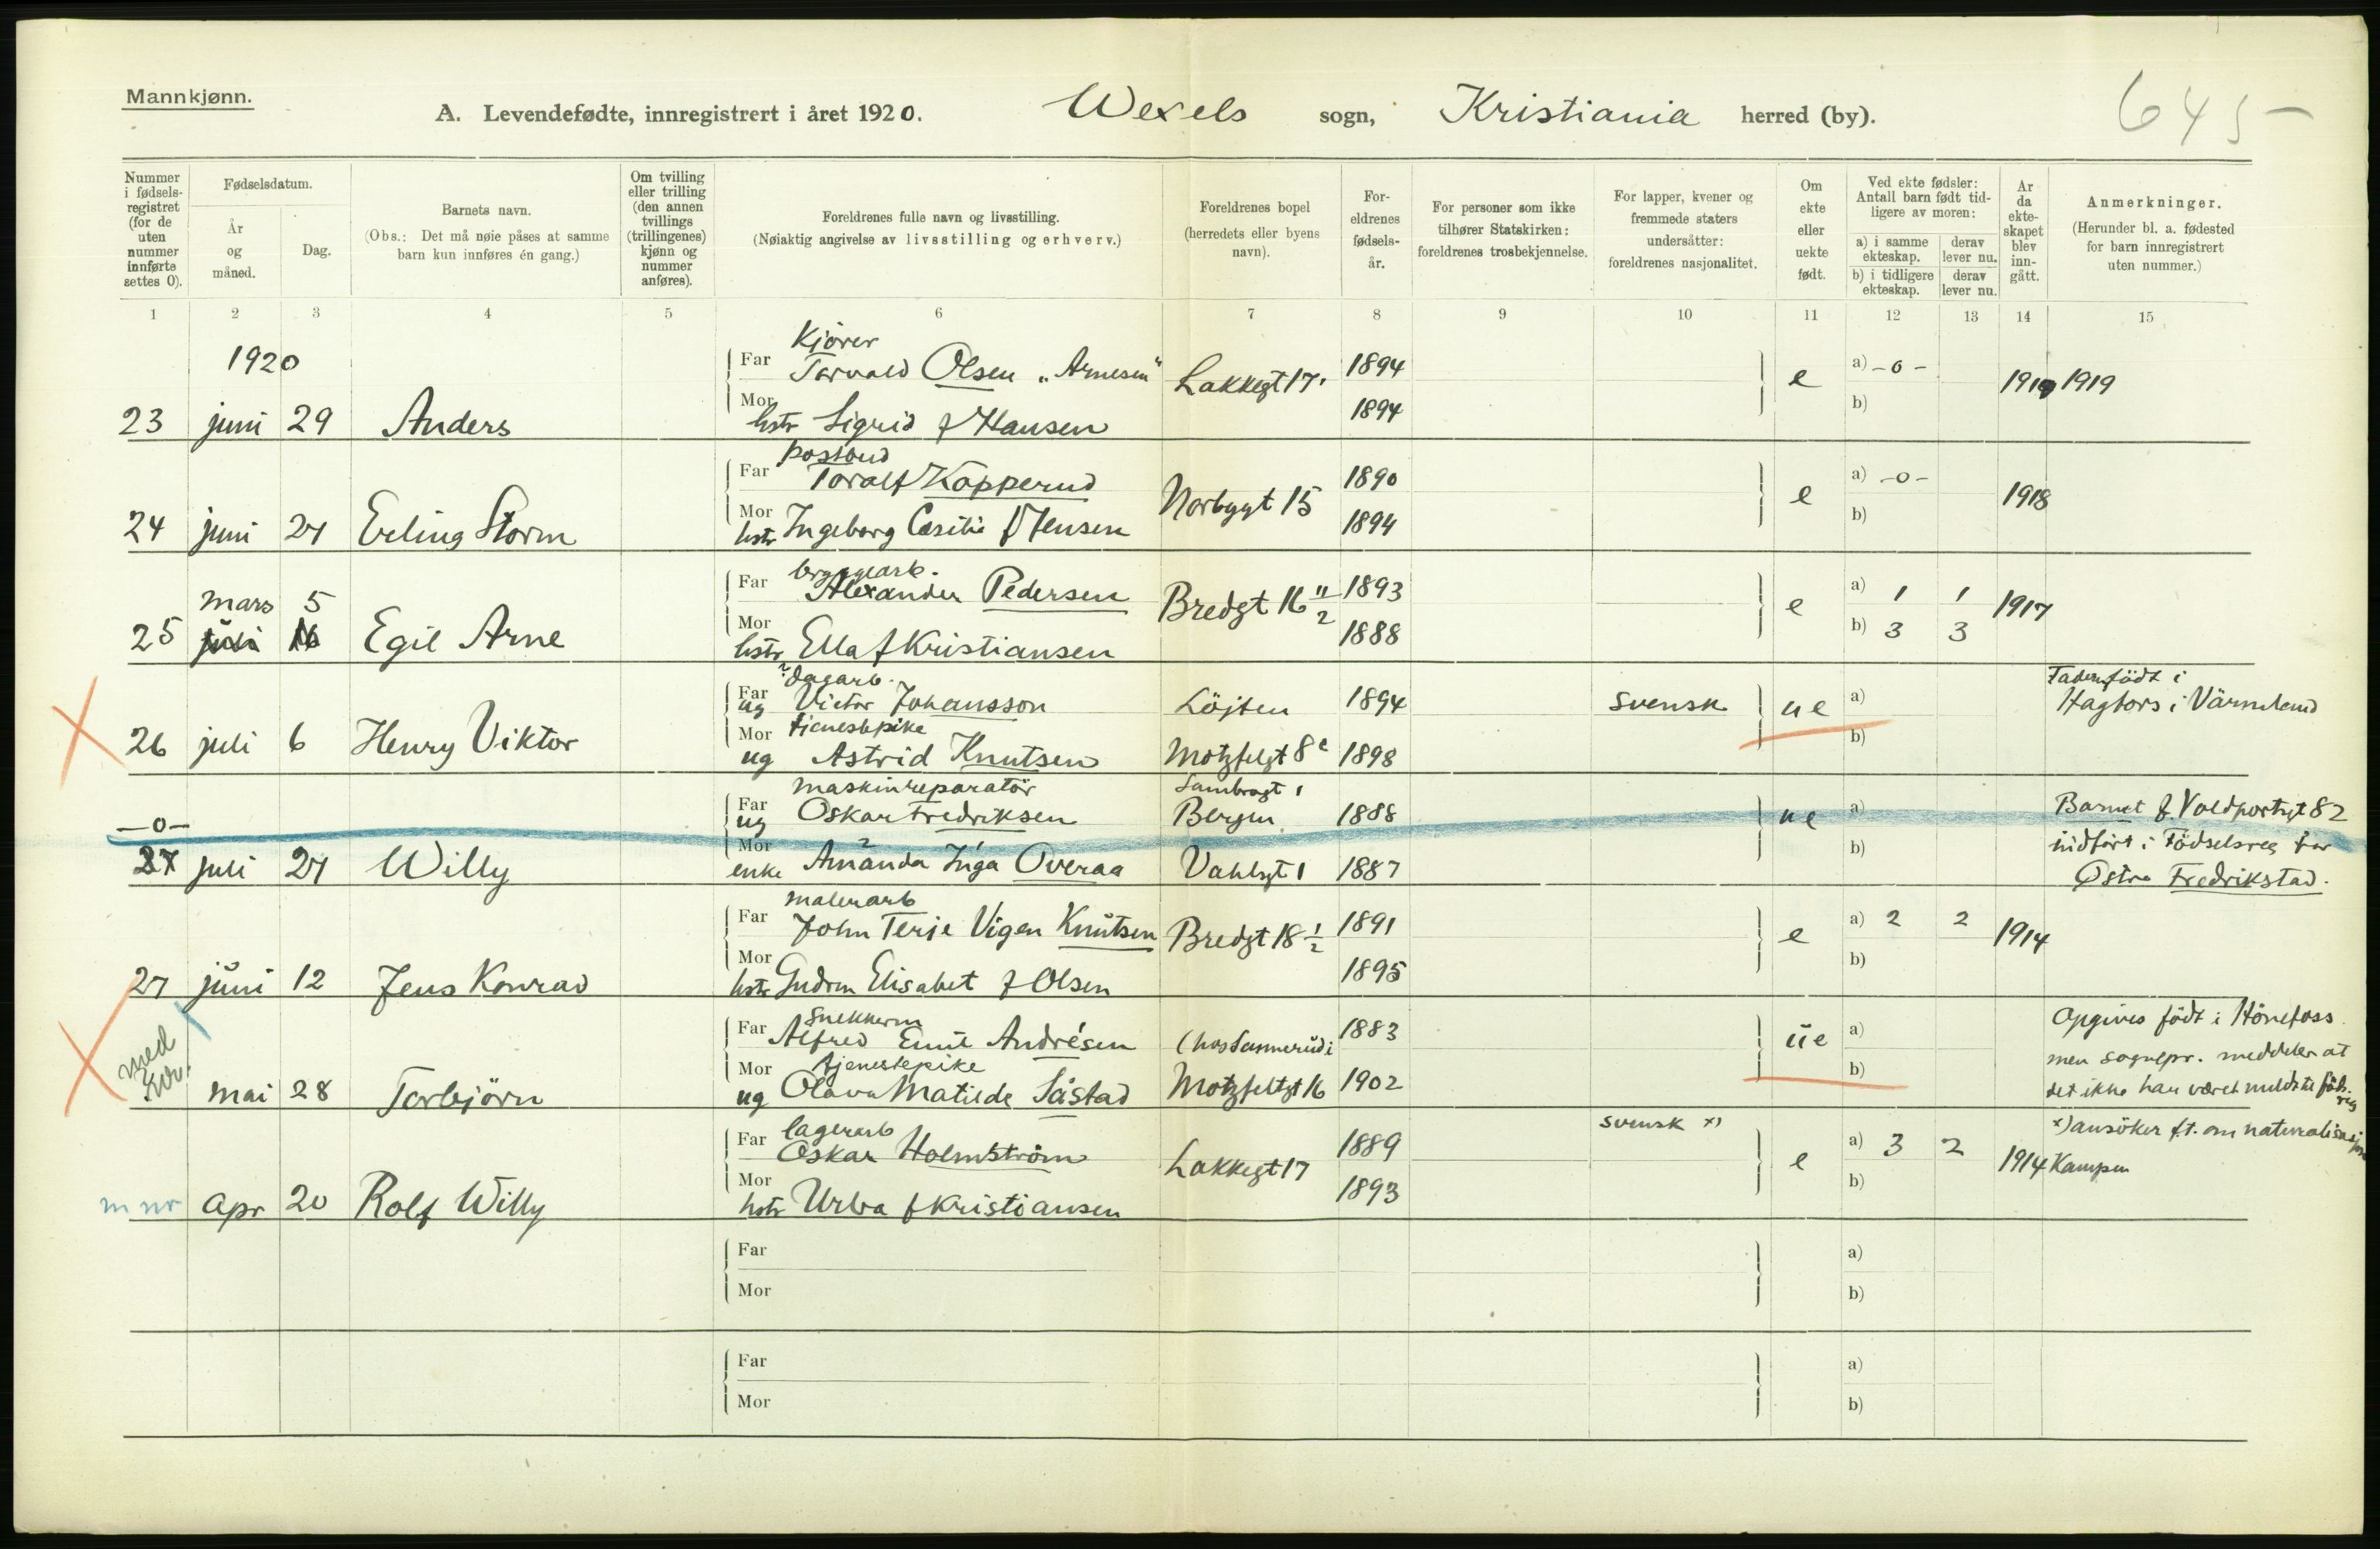 Mannkjønn.
A. Levendefødte, innregistrert i året 1920. Wexels sogn, Kristiania herred (by).
645-
Nummer i fødsels-registret (for de uten nummer innførte settes 0).
Fødselsdatum.
År og måned.
Dag.
Barnets navn.
(Obs.: Det må nøie påses at samme barn kun innføres én gang.)
Om tvilling eller trilling (den annen tvillings (trillingenes) kjønn og nummer anføres).
Foreldrenes fulle navn og livsstilling.
(Nøiaktig angivelse av livsstilling og erhverv.)
Foreldrenes bopel (herredets eller byens navn).
For-eldrenes fødsels-år.
For personer som ikke tilhører Statskirken: foreldrenes trosbekjennelse.
For lapper, kvener og fremmede staters undersåtter: foreldrenes nasjonalitet.
Om ekte eller uekte født.
Ved ekte fødsler: Antall barn født tid-ligere av moren:
a) i samme ekteskap. derav lever nu.
b) i tidligere ekteskap. derav lever nu.
År da ekte-skapet blev inn-gått.
Anmerkninger.
(Herunder bl. a. fødested for barn innregistrert uten nummer.)
1 2 3 4 5 6 7 8 9 10 11 12 13 14 15
1920
Kjører
Far Torvald Olsen „Arnesen" Lakkegt 17 1894 e a) -o- 1919 1919
23 juni 29 Anders Mor hstr Sigrid f Hansen 1894 b)
postbud
Far Toralf Kopperud Norbygt 15 1890 e a) -o- 1918
24 juni 27 Erling Storm Mor hstr Ingeborg Cesilie f Jensen 1894 b)
bryggearb.
mars 5 Far Alexander Pedersen Bredgt 16 11/2 1893 e a) 1 1 1917
25 juli 16 Egil Arne Mor hstr Ella f Kristiansen 1888 b) 3 3
dagarb.
Far ug Victor Johansson Löjten 1894 svensk ue a) Faderen födt i Hagfors i Värmland
tjenestepike
26 juli 6 Henry Viktor Mor ug Astrid Knutsen Motzfelgt 8 1898 b)
maskinreparatör
-o- Far ug Oskar Fredriksen Bergen 1888 ue a) Barnet f. Voldportgt 82
27 juli 27 Willy Mor enke Amanda Inga Overaa Vahlsgt 1 1887 b) indfört i Födselsreg for
Östre Fredrikstad.
malerarb
Far John Terje Vigen Knutsen Bredgt 18 1/2 1891 e a) 2 2 1914
27 juni 12 Jens Konrad Mor hstr Gudrun Elisabet f Olsen 1895 b)
snekkersv
Far Alfred Emil Andrésen 1883 ue a) Opgives födt i Hönefoss
med nr. tjenestepike men sognepr. meddeler at
mai 28 Torbjörn Mor ug Olava Matilde Såstad Motzfeltgt 16 1902 b) det ikke har været meldt til föds. reg
lagerarb svensk x) x) ansöker f.t. om naturalisasjon
Far Oskar Holmström Lakkegt 17 1889 e a) 3 2 1914 Kampen
m nr apr 20 Rolf Willy Mor hstr Urba f Kristiansen 1893 b)
Far a)
Mor b)
Far a)
Mor b)